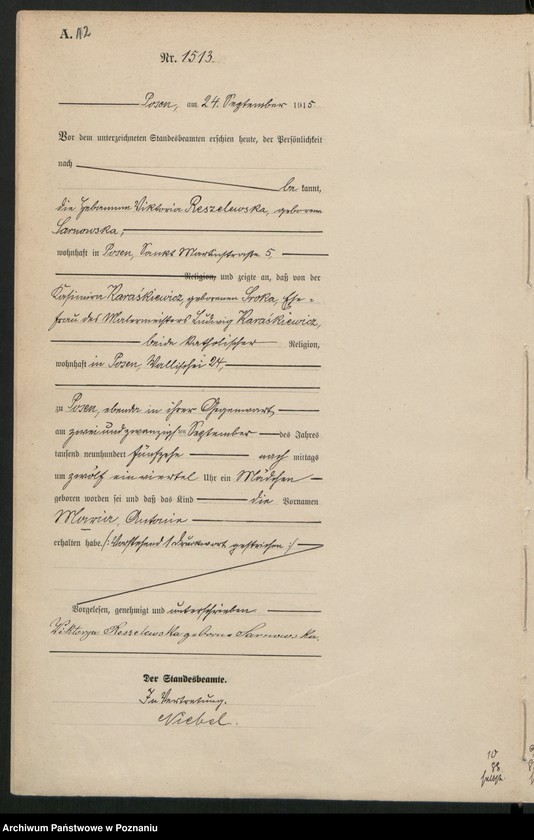 A. 112
Nr. 1513.
Posen, am 24. September 1915
Vor dem unterzeichneten Standesbeamten erschien heute, der Persönlichkeit
nach
be kannt,
die Hebamme Viktoria Reszelewska, geborene
Sarnowska,
wohnhaft in Posen, Sankt Martinstraße 5,
Religion, und zeigte an, daß von der
Kasimira Karaśkiewicz, geborenen Sroka, Ehe-
frau des Malermeisters Ludwig Karaśkiewicz,
beide katholischer Religion,
wohnhaft in Posen, Wallischei 24,
zu Posen, ebenda in ihrer Gegenwart
am zweiundzwanzigsten September des Jahres
tausend neunhundert fünfzehn nach mittags
um zwölf einviertel Uhr ein Mädchen
geboren worden sei und daß das Kind die Vornamen
Maria, Antonie
erhalten habe. /: Vorstehend 1 Druckwort gestrichen :/
Vorgelesen, genehmigt und unterschrieben
Wiktorya Reszelewska geborne Sarnowska.
Der Standesbeamte.
In Vertretung.
Niebel.
10
88
Archiwum Państwowe w Poznaniu